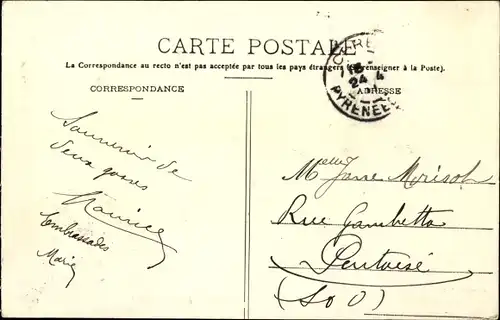 CARTE POSTALE
La Correspondance au recto n'est pas acceptée par tous les pays étrangers (Se renseigner à la Poste).
CORRESPONDANCE
ADRESSE
24 4
PYRENEES
Souvenir de
deux gosses
Maurice
Embrassades
Marie
Jane Morisot
Rue Gambetta
Pontoise
(S O)